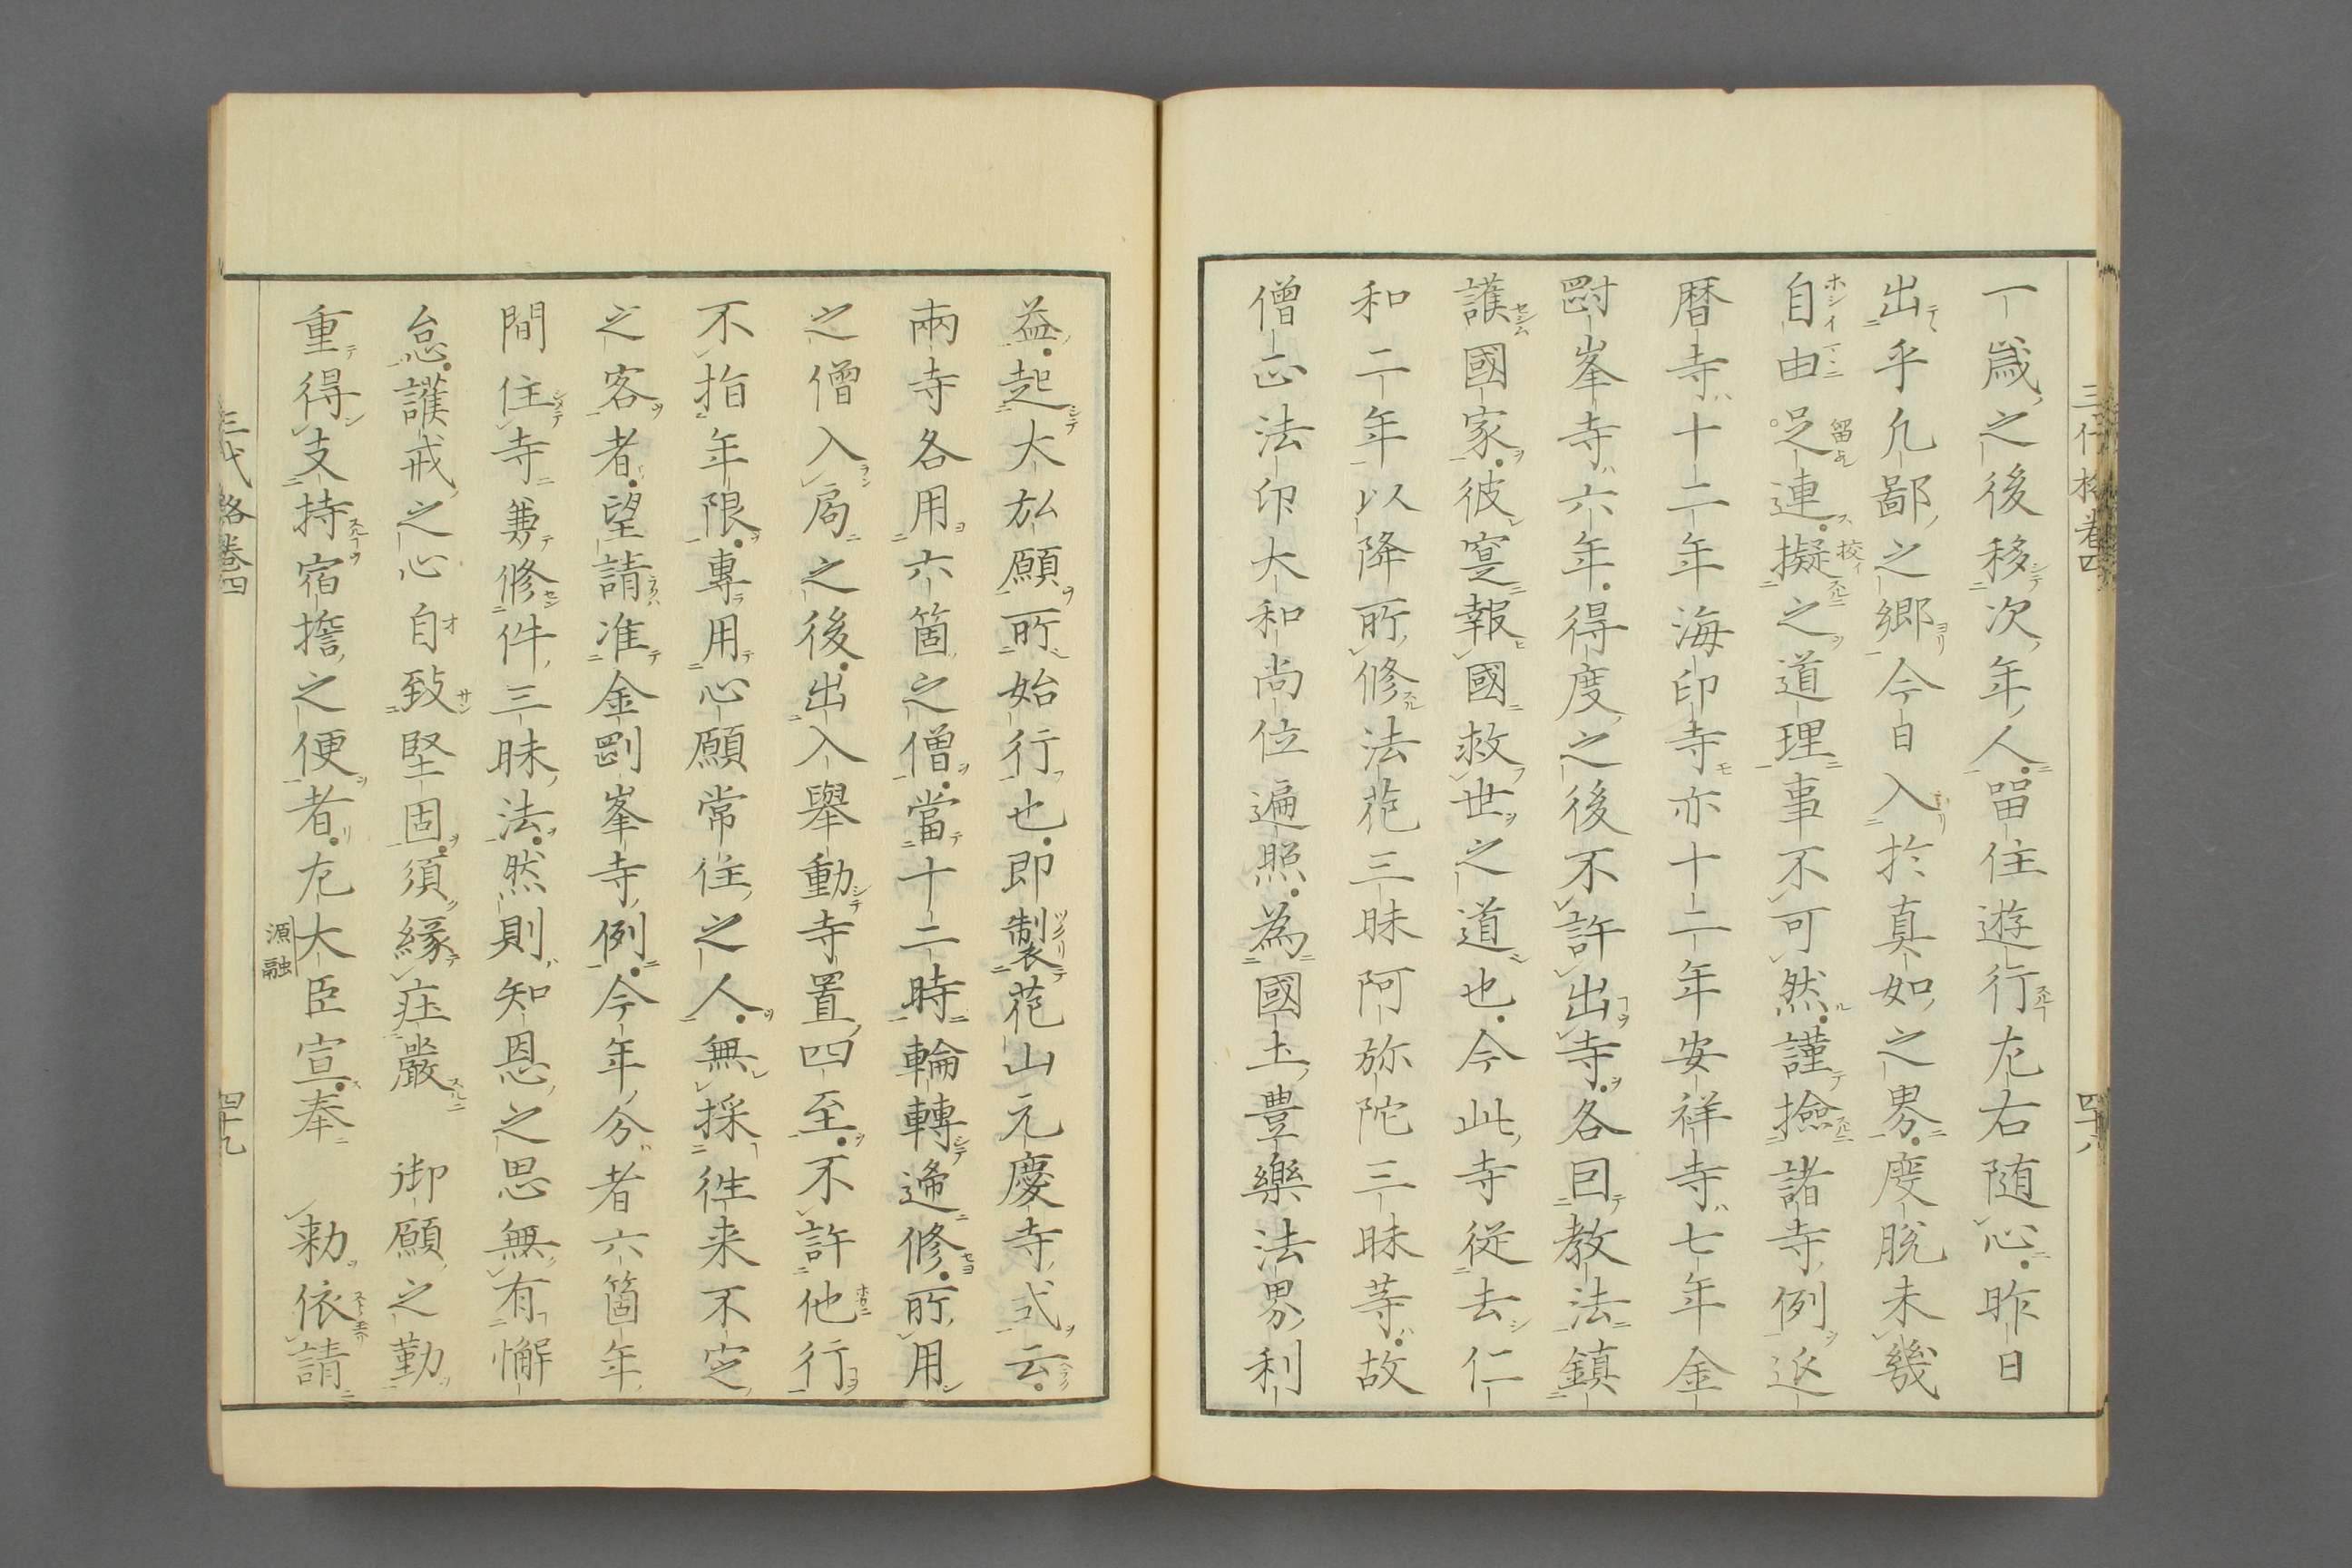 一歳之後移次年人留住遊行左右随心昨日
出乎凡鄙之郷今日入於真如之界度脱未幾
自由足連擬之道理事不可然謹撿諸寺例延
暦寺十二年海印寺亦十二年安祥寺七年金
剛峯寺六年得度之後不許出寺各回教法鎮
護國家彼寔報國救世之道也今此寺従去仁
和二年以降所修法花三昧阿弥陀三昧等故
僧正法印大和尚位遍照為國土豊樂法界利
益起大弘願所始行也即製花山元慶寺式云
兩寺各用六箇之僧當十二時輪轉遞修所用
之僧入局之後出入舉動寺置四至不許他行
不指年限專用心願常住之人無採徃来不定
之客者望請准金剛峯寺例今年分者六箇年
間住寺兼修件三昧法然則知恩之思無有懈
怠護戒之心自致堅固須縁庄嚴 御願之勤
重得支持宿擔之便者左大臣宣奉 勅依請
源融
三代格卷四
四十八
三代格卷四
四十九